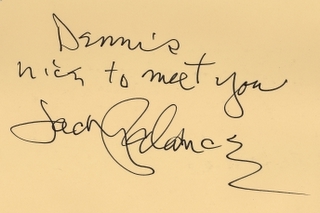 Dennis
nice to meet you
Jack Palance